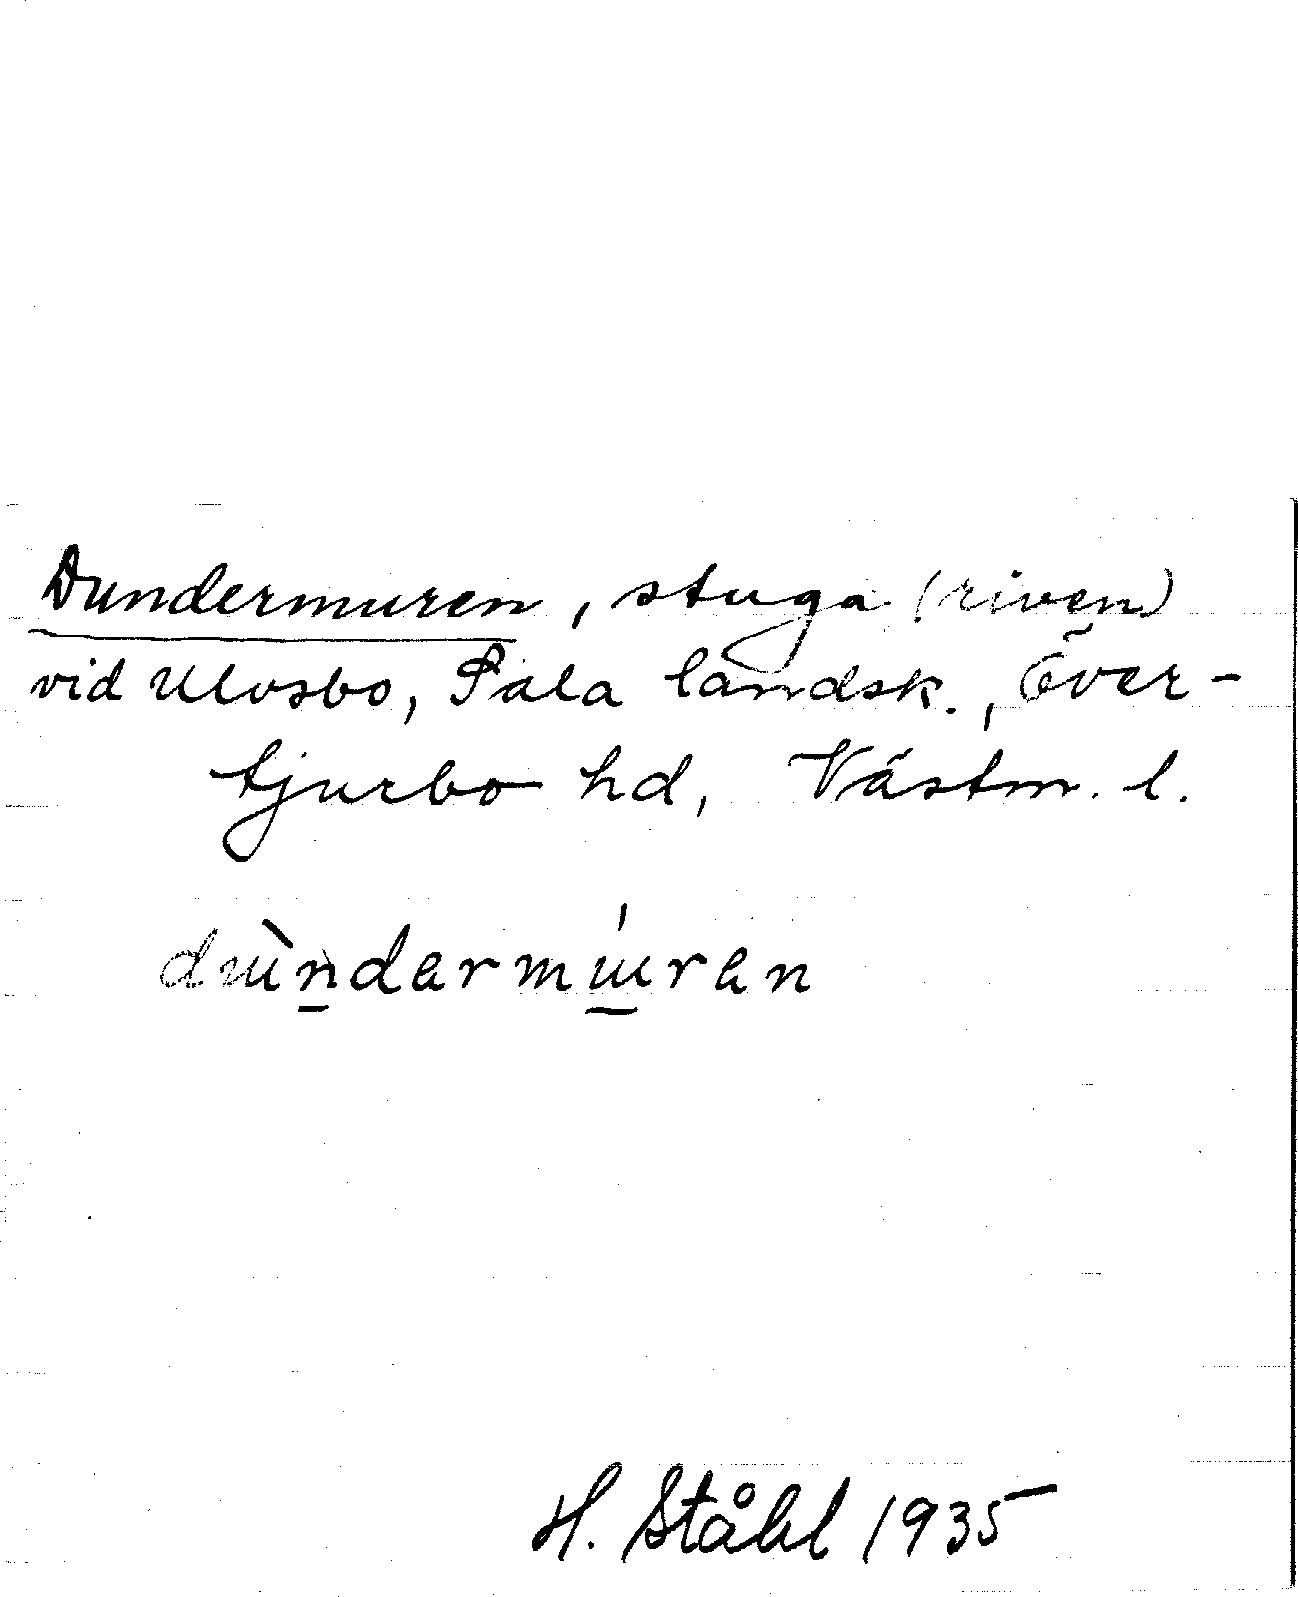 Dundermuren, stuga (riven)
vid Ulvsbo, Sala landsk., Över-
tjurbo hd, Västm. l.
dɯ̀n̲dərmɯ̲́rən
H. Ståhl 1935